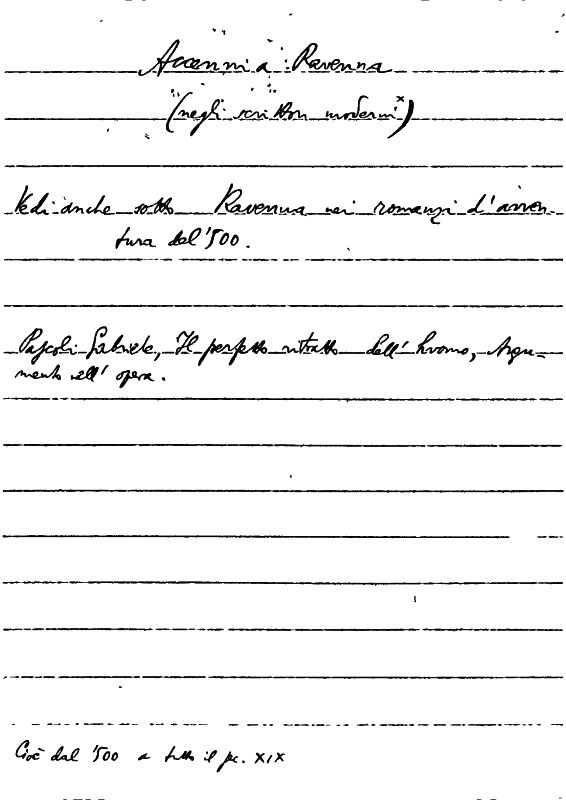 Accenni a Ravenna
(negli scrittori moderni x)
Vedi anche sotto Ravenna nei romanzi d'avven-
tura del '500.
Pascoli Gabriele, Il perfetto ritratto dell' huomo, Argu-
mento nell' opera.
Cioè dal '500 a tutto il sec. XIX